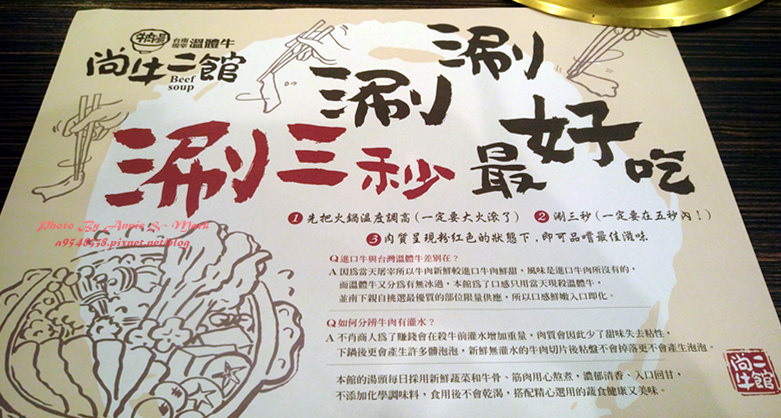 台南現宰 溫體牛
尚牛二館
Beef soup
涮涮涮
涮三秒 最好吃
❶先把火鍋溫度調高(一定要大火滾了) ❷涮三秒(一定要在五秒內!)
❸肉質呈現粉紅色的狀態下,即可品嚐最佳滋味
Photo By Annie & Mark
a9548518.pixnet.net/blog
Q進口牛與台灣溫體牛差別在?
A因為當天屠宰所以牛肉新鮮較進口牛肉鮮甜,風味是進口牛肉所沒有的,
而溫體牛又分為有無冰過,本館為了口感只用當天現殺溫體牛,
並南下親自挑選最優質的部位限量供應,所以口感鮮嫩入口即化。
Q如何分辨牛肉有灌水?
A不肖商人為了賺錢會在殺牛前灌水增加重量,肉質會因此少了甜味失去粘性,
下鍋後更會產生許多髒泡泡,新鮮無灌水的牛肉切片後粘盤不會掉落更不會產生泡泡。
本館的湯頭每日採用新鮮蔬菜和牛骨、筋肉用心熬煮,濃郁清香、入口回甘,
不添加化學調味料,食用後不會乾渴,搭配精心選用的蔬食健康又美味。
尚牛二館